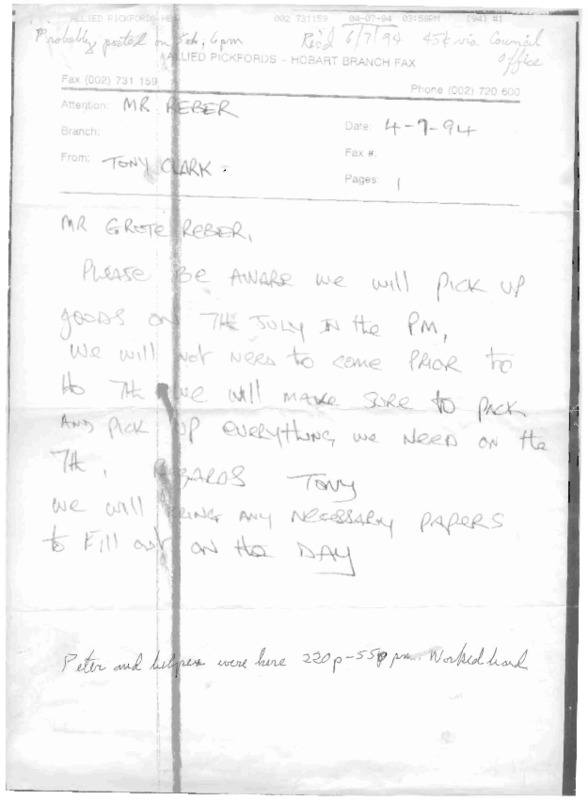 ALLIED PICKFORDS HBA 002 731159 04-07-94 03:58PM [94] #1
Probably posted on Feb, 6pm Recd 6/7/94 45¢ via Council office
ALLIED PICKFORDS - HOBART BRANCH FAX
Fax (002) 731 159 Phone (002) 720 600
Attention: MR REBER
Branch:
Date: 4-7-94
Fax #:
From: TONY CLARK.
Pages: 1
MR GROTE REBER,
PLEASE BE AWARE we will PICK UP
goods on 7th JULY IN the PM,
we will not NEED to come PRIOR to
to 7th we will MAKE SURE to PACK
AND PICK UP everything we NEED on the
7th, REGARDS TONY
we will BRING ANY NECESSARY PAPERS
to Fill out on the DAY
Peter and helpers were here 220p-550p pm. Worked hard